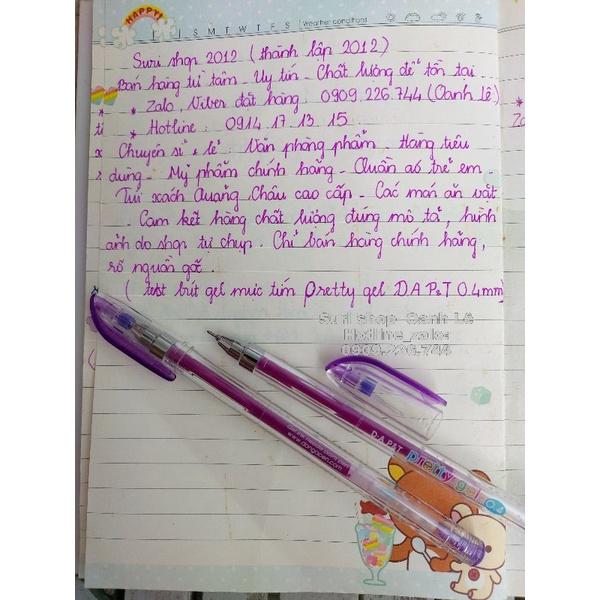 HAPPY!
S M T W T F S Weather conditions
Suri shop 2012 (thành lập 2012)
Bán hàng từ tâm - Uy tín - Chất lượng để tồn tại
* Zalo, Viber đặt hàng: 0909.226.744 (Oanh Lê)
* Hotline: 0914.17.13.15
Chuyên sỉ & lẻ: Văn phòng phẩm - Hàng tiêu
dùng - Mỹ phẩm chính hãng - Quần áo trẻ em -
Túi xách Quảng Châu cao cấp - Các món ăn vặt
- Cam kết hàng chất lượng đúng mô tả, hình
ảnh do shop tự chụp. Chỉ bán hàng chính hãng,
rõ nguồn gốc.
( test bút gel mực tím pretty gel D.A P&T 0.4mm)
Suri shop Oanh Lê
Hotline_zalo:
0909.226.744
D.A P&T pretty gel 0.4
www.dongacwn.com